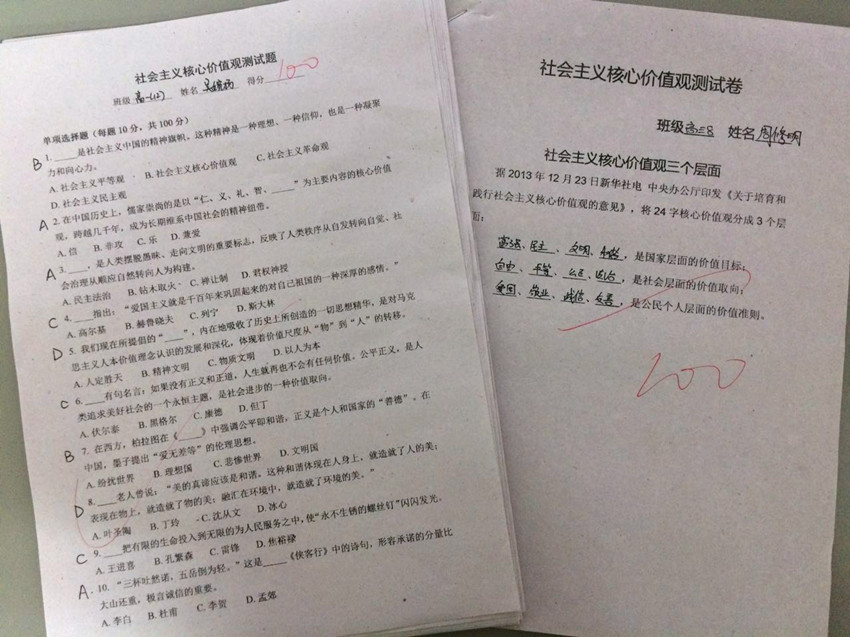 社会主义核心价值观测试题
班级 高一(2) 姓名 得分 100
单项选择题（每题10分，共100分）
B 1.____是社会主义中国的精神旗帜。这种精神是一种理想、一种信仰，也是一种凝聚
力和向心力。
A. 社会主义平等观 B. 社会主义核心价值观 C. 社会主义革命观
D. 社会主义民主观
A 2. 在中国历史上，儒家崇尚的是以“仁、义、礼、智、____”为主要内容的核心价值
观，跨越几千年，成为长期维系中国社会的精神纽带。
A. 信 B. 非攻 C. 乐 D. 兼爱
A 3.____，是人类摆脱愚昧、走向文明的重要标志，反映了人类秩序从自发转向自觉、社
会治理从顺应自然转向人为构建。
A. 民主法治 B. 钻木取火 C. 禅让制 D. 君权神授
C 4.____指出：“爱国主义就是千百年来巩固起来的对自己祖国的一种深厚的感情。”
A. 高尔基 B. 赫鲁晓夫 C. 列宁 D. 斯大林
D 5. 我们现在所提倡的“____”，内在地吸收了历史上所创造的一切思想精华，是对马克
思主义人本价值理念认识的发展和深化，体现着价值尺度从“物”到“人”的转移。
A. 人定胜天 B. 精神文明 C. 物质文明 D. 以人为本
C 6.____有句名言：如果没有正义和正道，人生就再也不会有任何价值。公平正义，是人
类追求美好社会的一个永恒主题，是社会进步的一种价值取向。
A. 伏尔泰 B. 黑格尔 C. 康德 D. 但丁
B 7. 在西方，柏拉图在《____》中强调公平即和谐，正义是个人和国家的“善德”。在
中国，墨子提出“爱无差等”的伦理思想。
A. 纷扰世界 B. 理想国 C. 悲惨世界 D. 文明国
D 8.____老人曾说：“美的真谛应该是和谐。这种和谐体现在人身上，就造就了人的美；
表现在物上，就造就了物的美；融汇在环境中，就造就了环境的美。”
A. 叶圣陶 B. 丁玲 C. 沈从文 D. 冰心
C 9.____把有限的生命投入到无限的为人民服务之中，使“永不生锈的螺丝钉”闪闪发光。
A. 王进喜 B. 孔繁森 C. 雷锋 D. 焦裕禄
A. 10. “三杯吐然诺，五岳倒为轻。”这是____《侠客行》中的诗句，形容承诺的分量比
太山还重，极言诚信的重要。
A. 李白 B. 杜甫 C. 李贺 D. 孟郊
社会主义核心价值观测试卷
班级 高三8 姓名 周修明
社会主义核心价值观三个层面
据2013年12月23日新华社电 中央办公厅印发《关于培育和
践行社会主义核心价值观的意见》，将24字核心价值观分成3个层
面：
富强、民主、文明、和谐，是国家层面的价值目标；
自由、平等、公正、法治，是社会层面的价值取向；
爱国、敬业、诚信、友善，是公民个人层面的价值准则。
100